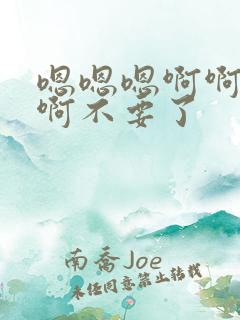 嗯嗯嗯啊啊
啊不要了
南乔Joe
未经同意禁止转载